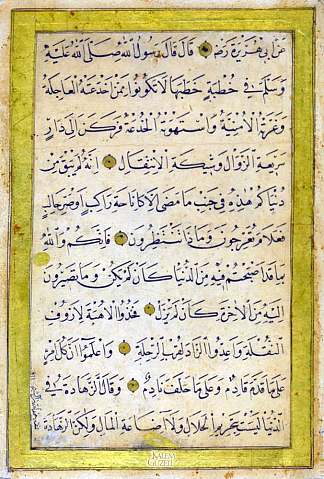 عن ابي هريرة رضه قال قال رسول الله صلى الله عليه
وسلم في خطبة خطبها لا تكونوا ممن اخدعته العاجلة
وغرته الامنية واستهوته الخدعة وركن الى دار
سريعة الزوال وشيكة الانتقال انه لم يبق من
دنياكم هذه في جنب ما مضى الا كاناخة راكب او صر حالب
فعلام تعرجون وماذا تنتظرون فانكم والله
بما قد اصبحتم فيه من الدنيا كان لم يكن وما تصيرون
اليه من الاخرة كان لم يزل فخذوا الاهبة لازوف
النقلة واعدوا الزاد لقرب الرحلة واعلموا ان كل امرء
على ما قدم قادم وعلى ما خلف نادم وقال الزهادة في
الدنيا ليست بتحريم الحلال ولا اضاعة المال ولكن الزهادة
KALEM
GÜZELİ